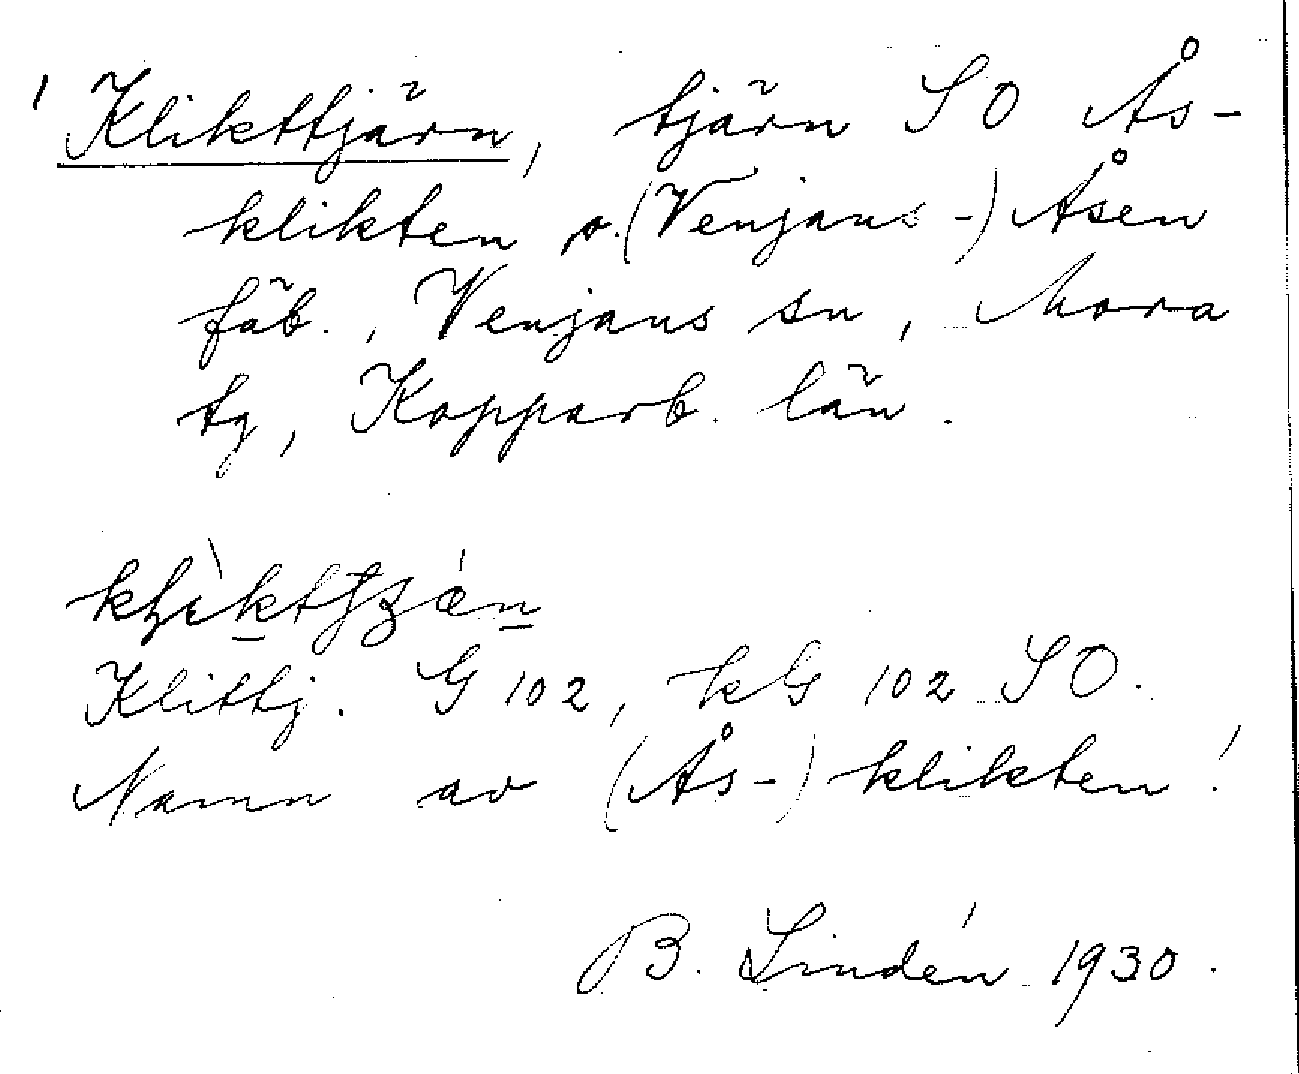 Klikttjärn, tjärn SO Ås-
klikten o. (Venjans-) Åsen
fäb., Venjans sn, Mora
tg, Kopparb. län.
Klittj. G 102, kG 102 SO.
Namn av (Ås-) klikten!
B. Lindén 1930.